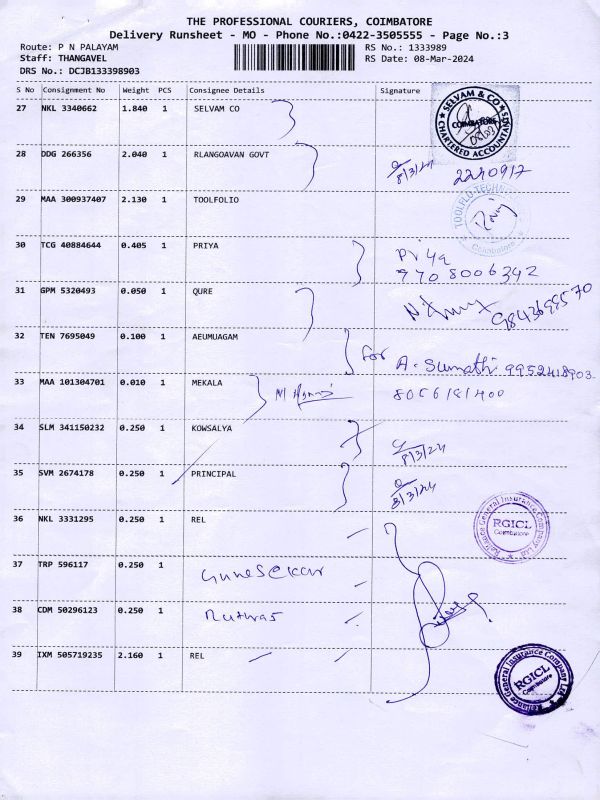 THE PROFESSIONAL COURIERS, COIMBATORE
Delivery Runsheet - MO - Phone No.:0422-3505555 - Page No.:3
Route: P N PALAYAM
RS No.: 1333989
Staff: THANGAVEL
RS Date: 08-Mar-2024
DRS No.: DCJB133398903
S No Consignment No Weight PCS Consignee Details Signature
27 NKL 3340662 1.840 1 SELVAM CO
SELVAM & CO
COIMBATORE
CHARTERED ACCOUNTANTS
28 DDG 266356 2.040 1 RLANGOAVAN GOVT
8/3/24
2240917
29 MAA 300937407 2.130 1 TOOLFOLIO
Coimbatore
30 TCG 40884644 0.405 1 PRIYA
Priya
9708006342
31 GPM 5320493 0.050 1 QURE
9843698570
32 TEN 7695049 0.100 1 AEUMUAGAM
for A. Sumathi 9952418903
33 MAA 101304701 0.010 1 MEKALA
8056181400
34 SLM 341150232 0.250 1 KOWSALYA
8/3/24
35 SVM 2674178 0.250 1 PRINCIPAL
8/3/24
36 NKL 3331295 0.250 1 REL
Reliance General Insurance Company Ltd
RGICL
Coimbatore
37 TRP 596117 0.250 1
Gunesekar
38 CDM 50296123 0.250 1
39 IXM 505719235 2.160 1 REL
Reliance General Insurance Company Ltd
RGICL
Coimbatore